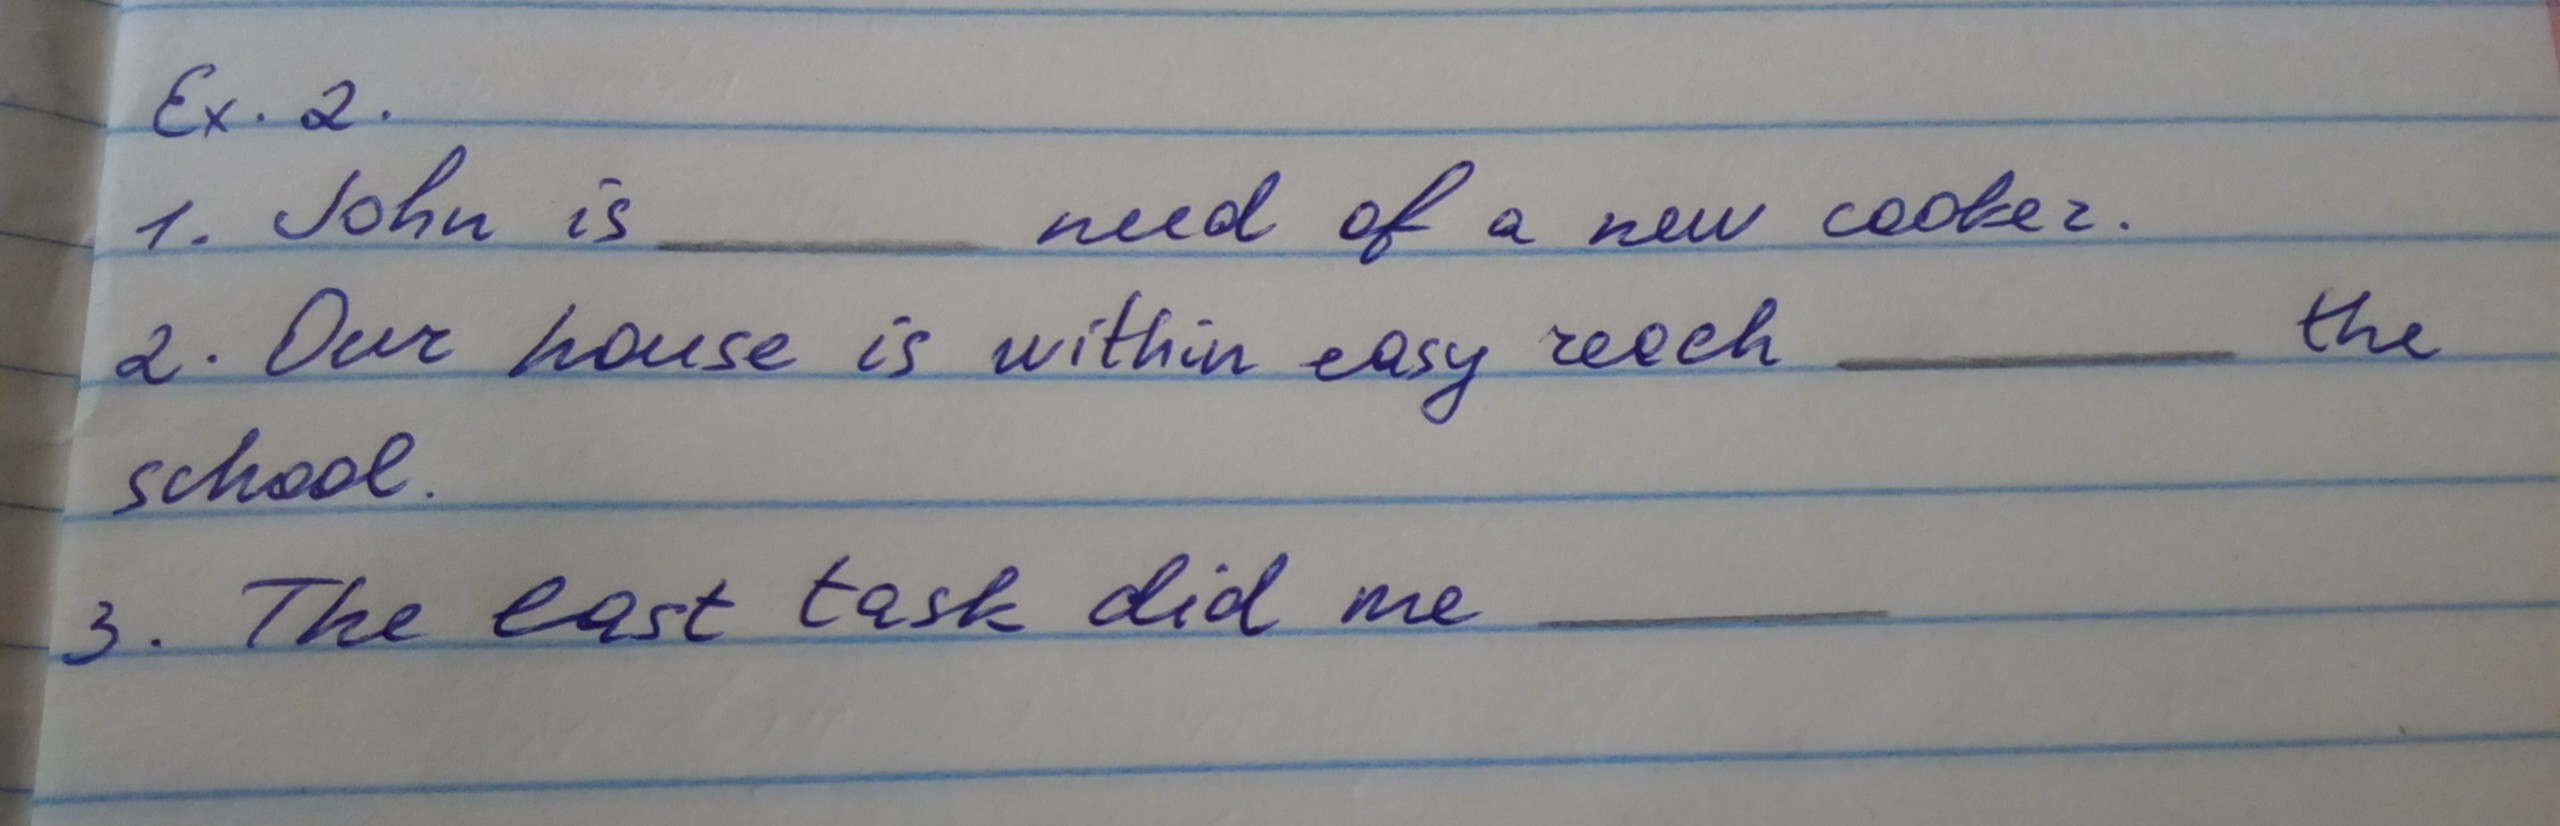 Ex. 2.
1. John is ______ need of a new cooker.
2. Our house is within easy reach ______ the
school.
3. The last task did me ______